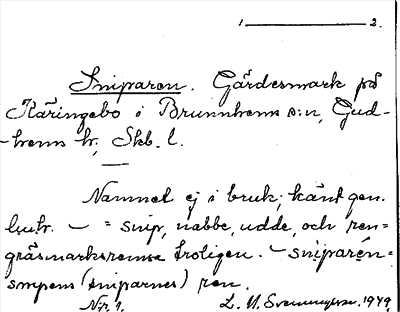 1 ——— 2.
Sniparen. Gärdesmark på
Käringebo i Brunnhems s:n, Gud-
-hems hr, Skb. l.
Namnet ej i bruk; känt gen.
ljutr. — = snip, nabbe, udde, och ren=
gräsmarksremsa troligen. — sniparén=
snipens (sniparnes) ren.
N:r 1. L. M. 1949.